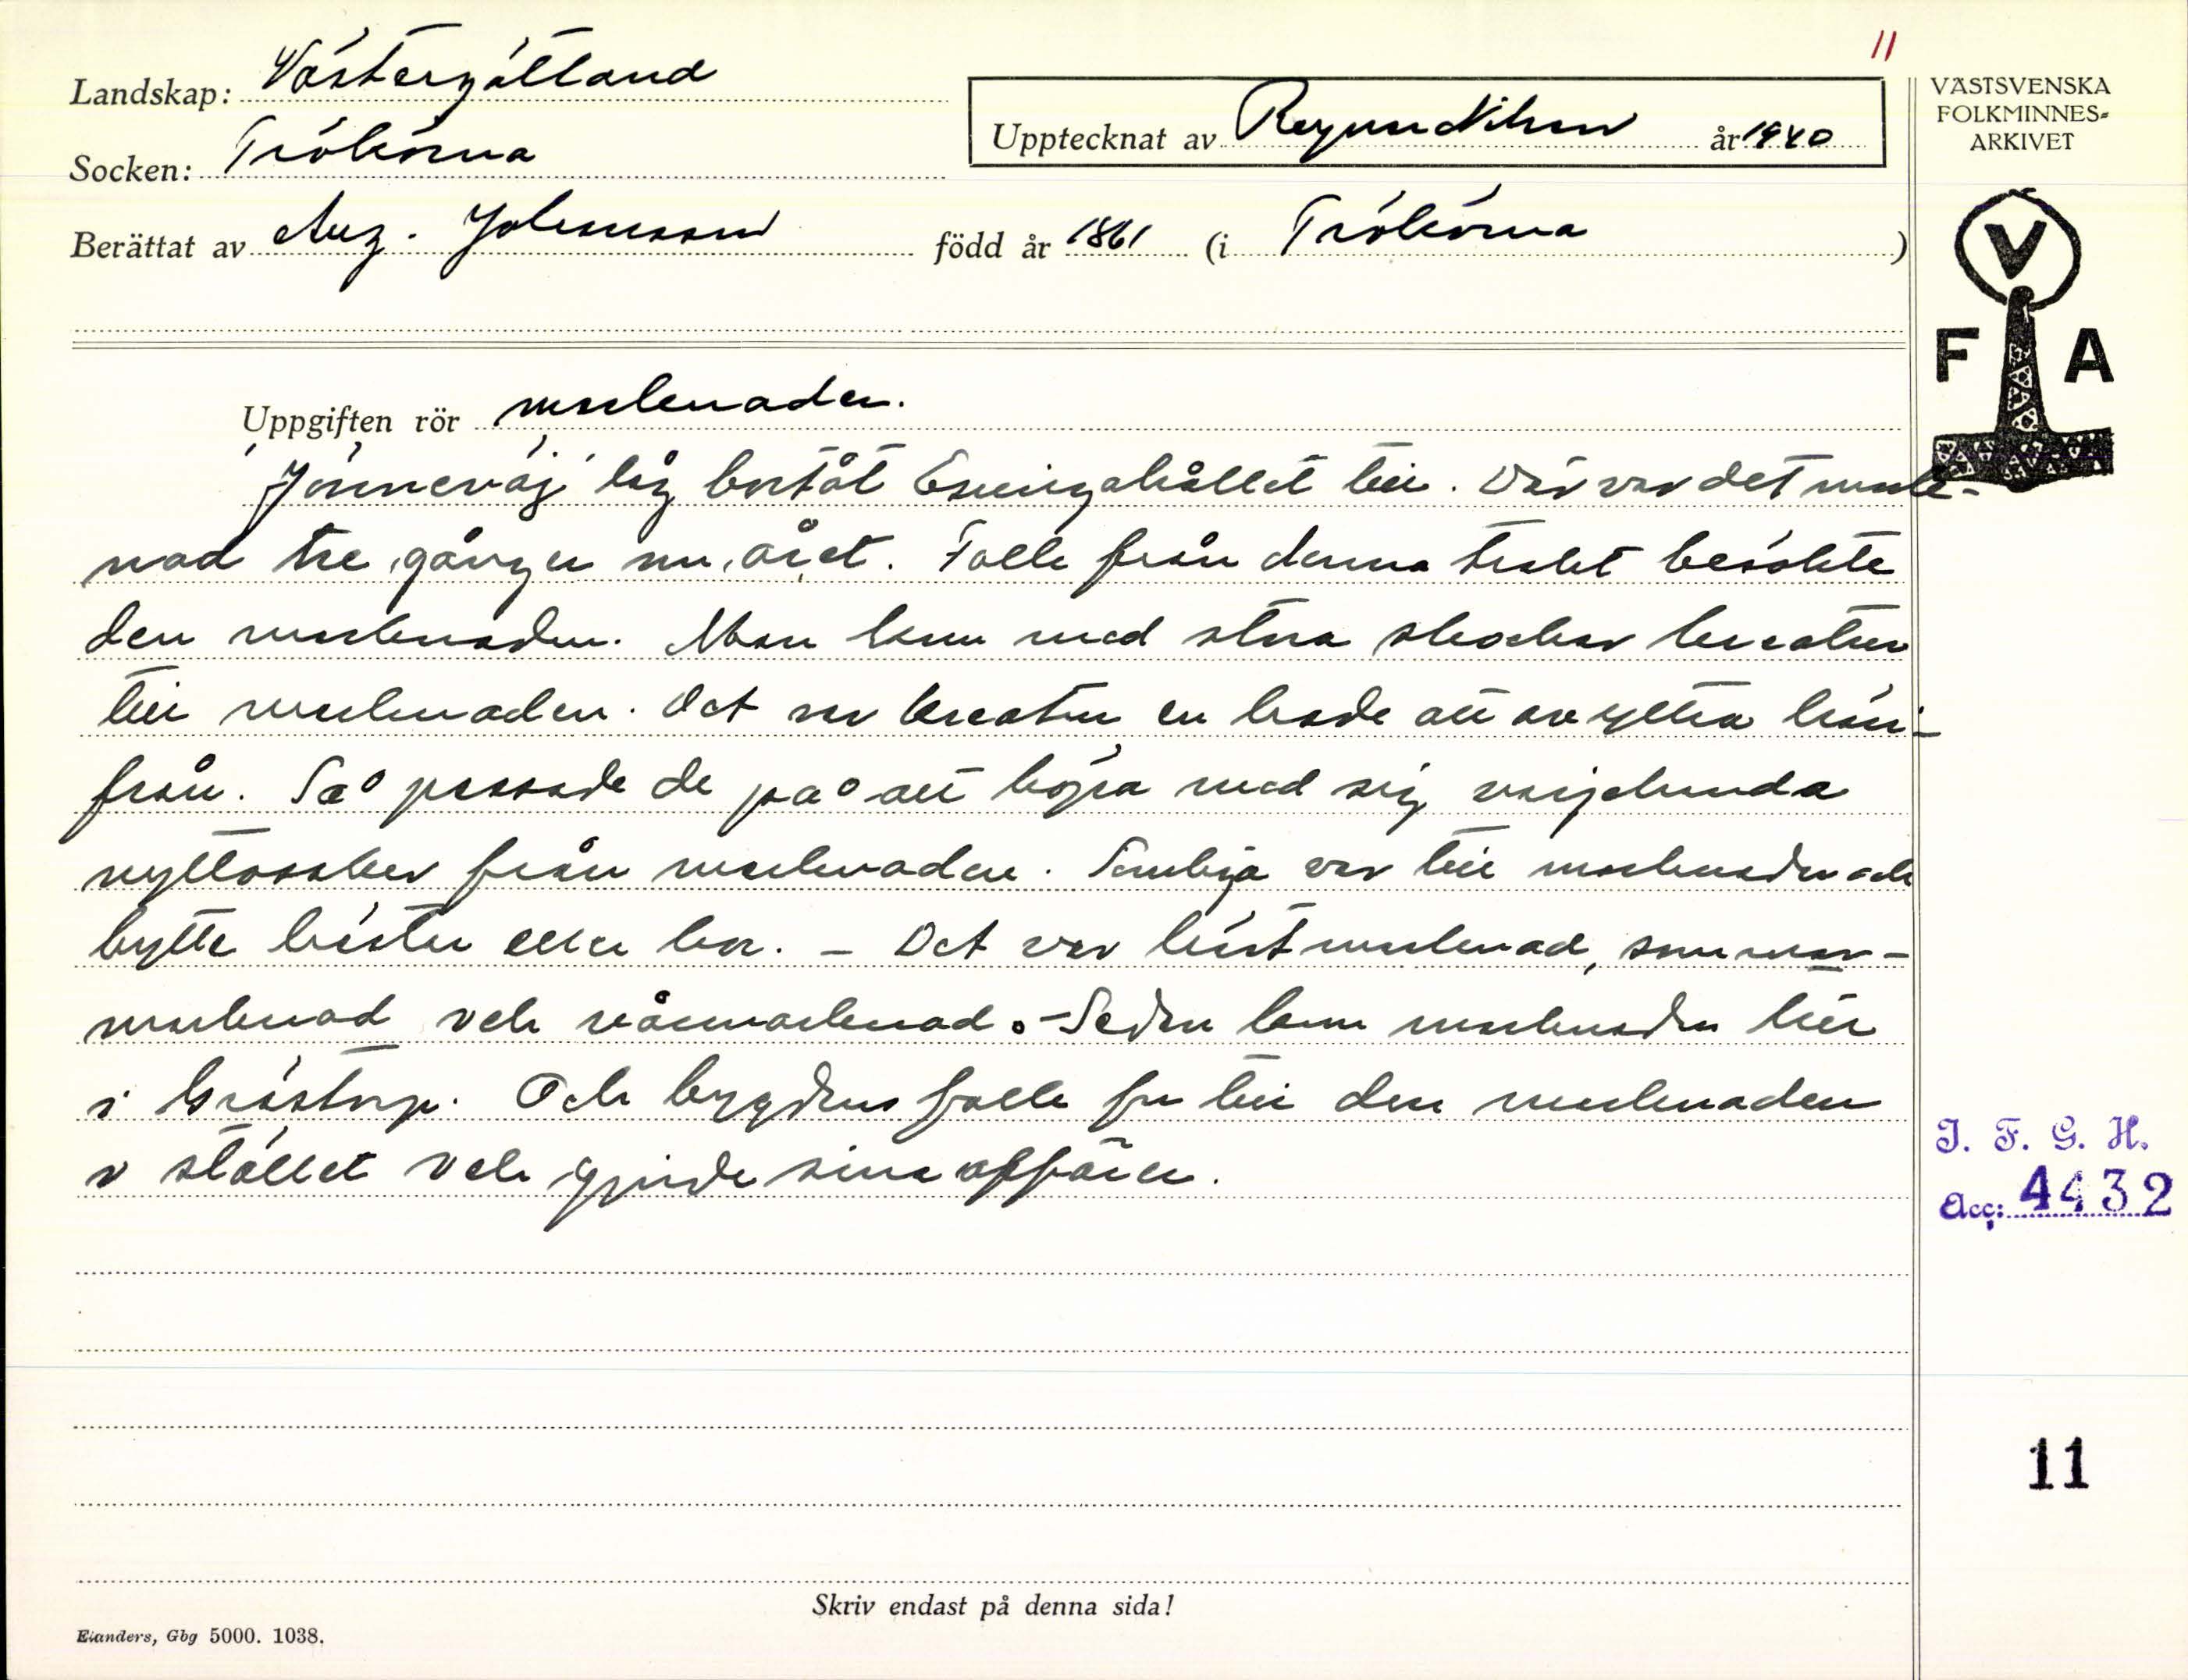 11
Landskap: Västergötland
Socken: Trökörna
Upptecknat av Ragnar Nilsson år 1940
Berättat av Aug. Johansson född år 1861 (i Trökörna)
VÄSTSVENSKA
FOLKMINNES-
ARKIVET
V
F A
Uppgiften rör marknader.
"Jönneväj" låg bortåt till. Där var det mark-
nad tre gånger om året. Folk från denna trakt besökte
den marknaden. Man kom med stora skockar kreatur
till marknaden. Det var kreatur en hade att avyttra häri-
från. Så passade de på att köpa med sig varjehanda
nyttosaker från marknaden. Somliga var till marknaden och
bytte hästar eller kor. – Det var höstmarknad, sommar-
marknad och vårmarknad. – Sedan kom marknaden till
i Grästorp. Och bygdens folk for till den marknaden
i stället och gjorde sina affärer.
I. F. G. H.
Acc: 4432
11
Skriv endast på denna sida!
Elanders, Gbg 5000. 1038.